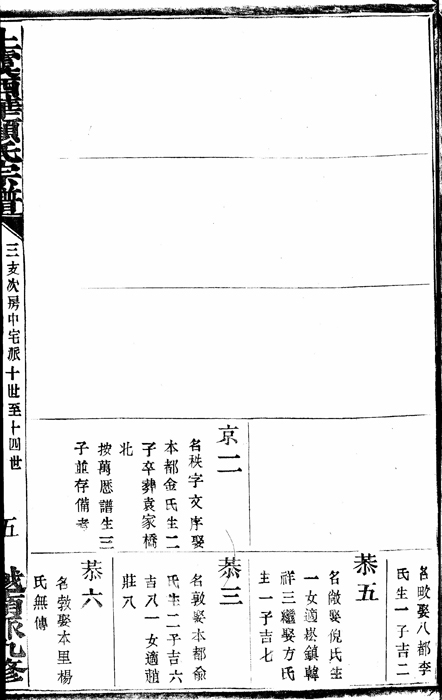 上虞西華顧氏宗譜
三支次房中宅派十世至十四世
五
京二
名秩字文序娶
本都金氏生二
子卒葬袁家橋
北
按萬厯譜生三
子並存備考
名畋娶八都李
氏生一子吉二
恭五
名敵娶倪氏生
一女適崧鎮韓
祥三繼娶方氏
生一子吉七
恭三
名敦娶本都俞
氏生二子吉六
吉八一女適趙
莊八
恭六
名敦娶本里楊
氏無傳